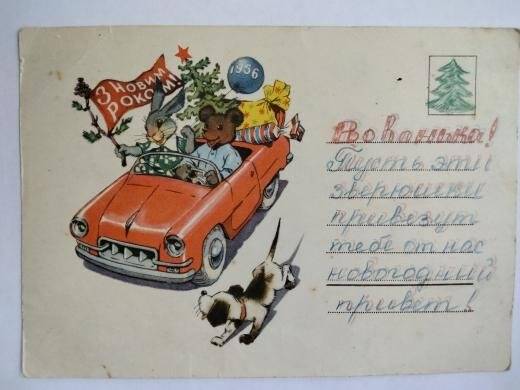 З НОВИМ
РОКОМ!
1956
Вованька!
Пусть эти
зверюшки
привезут
тебе от нас
новогодний
привет!